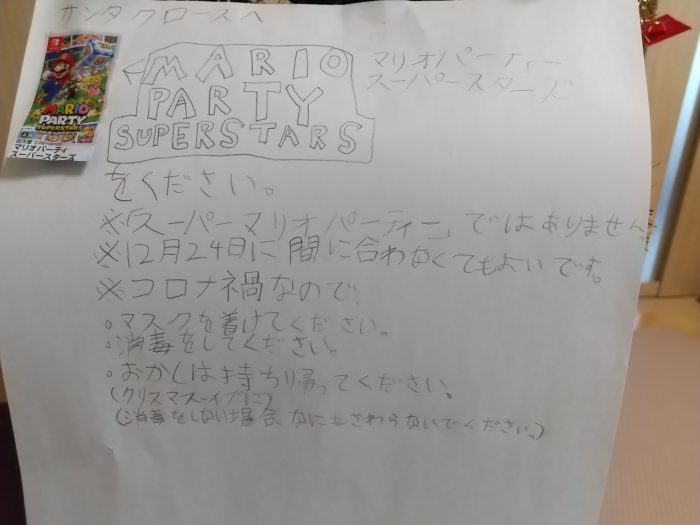 サンタクロースへ
MARIO
PARTY
SUPERSTARS
マリオパーティー
スーパースターズ
MARIO
PARTY
SUPERSTARS
マリオパーティ
スーパースターズ
をください。
※「スーパーマリオパーティー」ではありません。
※12月24日に間に合わなくてもよいです。
※コロナ禍なので、
。マスクを着けてください。
。消毒をしてください。
。おかしは持ち帰ってください。
(クリスマスーイブに)
(消毒をしない場合、なにもさわらないでください。)